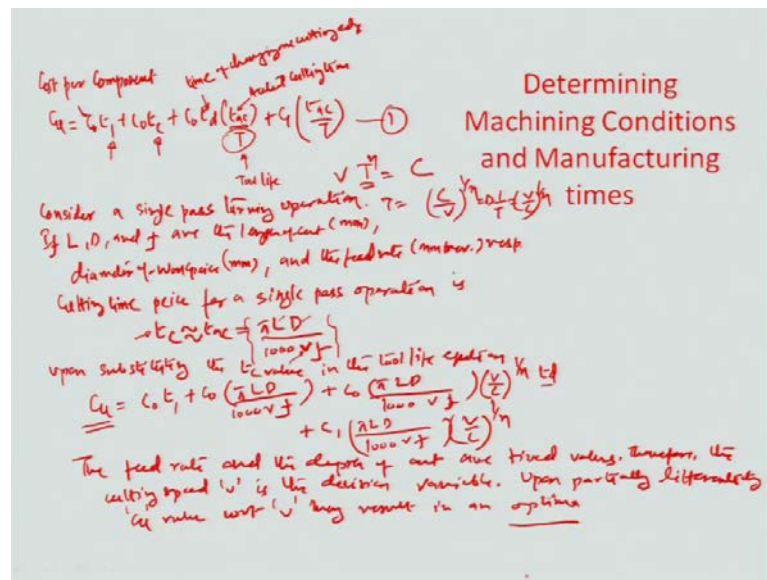 Determining
Machining Conditions
and Manufacturing
times
Cost per Component time of changing cutting edge
actual cutting time
Cu = Cot1 + Cotc + Cotd (tac/T) + Ct (tac/T) — 1
Tool life
v Tⁿ = C
Consider a single pass turning operation. T = (C/v)^1/n ⇒ 1/T = (v/C)^1/n
If L, D, and f are the length of cut (mm),
diameter of workpiece (mm), and the feed rate (mm/rev.) resp.
Cutting time peice for a single pass operation is
tc ≈ tac = {πLD / 1000 v f}
upon substituting the tc value in the tool life equation
Cu = Cot1 + Co (πLD / 1000 v f) + Co (πLD / 1000 v f) (v/C)^1/n td
+ Ct (πLD / 1000 v f) (v/C)^1/n
The feed rate and the depth of cut are fixed values. Therefore, the
cutting speed 'v' is the decision variable. Upon partially differentiating
'Cu value wrt 'v' may result in an optima